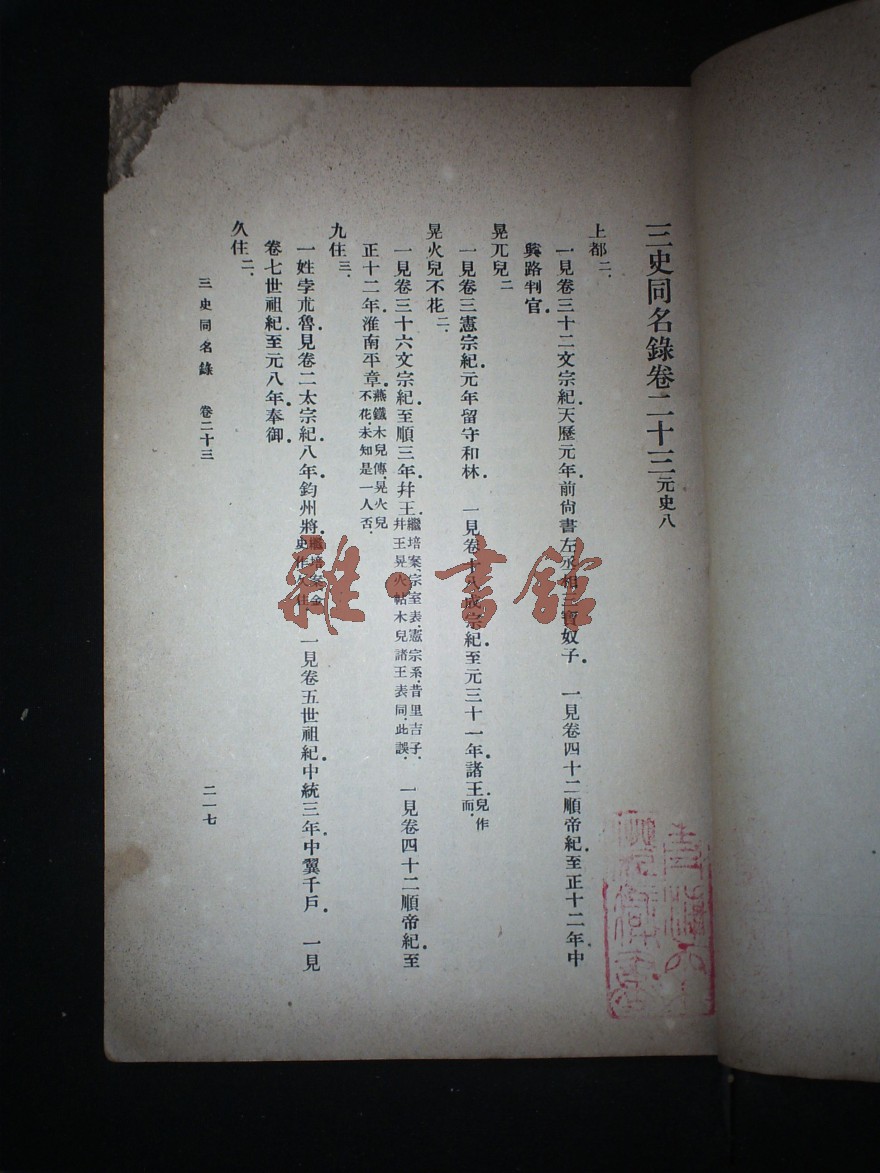 三史同名錄卷二十三元史八
上都二、
一見卷三十二文宗紀天歷元年前尙書左丞相三寶奴子。 一見卷四十二順帝紀至正十二年中
興路判官。
晃兀兒二
一見卷三憲宗紀元年留守和林。 一見卷十八成宗紀至元三十一年諸王。兒作而。
晃火兒不花二、
一見卷三十六文宗紀至順三年幷王。繼培案、宗室表、憲宗系、昔里吉子、幷王晃火帖木兒諸王表同、此誤、 一見卷四十二順帝紀至
正十二年淮南平章。燕鐵木兒傳、晃火兒不花、未知是一人否、
九住三、
一姓孛朮魯、見卷二太宗紀八年鈞州將。繼培案金史作久住 一見卷五世祖紀中統三年中翼千戶。 一見
卷七世祖紀至元八年奉御。
久住二、
三史同名錄 卷二十三
二一七
雜·書館